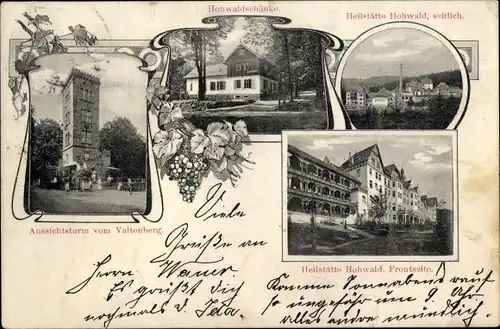 Hohwaldschänke.
Heilstätte Hohwald, seitlich.
Aussichtsturm vom Valtenberg.
Heilstätte Hohwald. Frontseite.
Viele
Grüße an
Herrn Wauer.
Es grüßt dich
nochmals d. Ida.
Komme Sonnabend rauf
so ungefähr um 9 Uhr
alles andre mündlich.